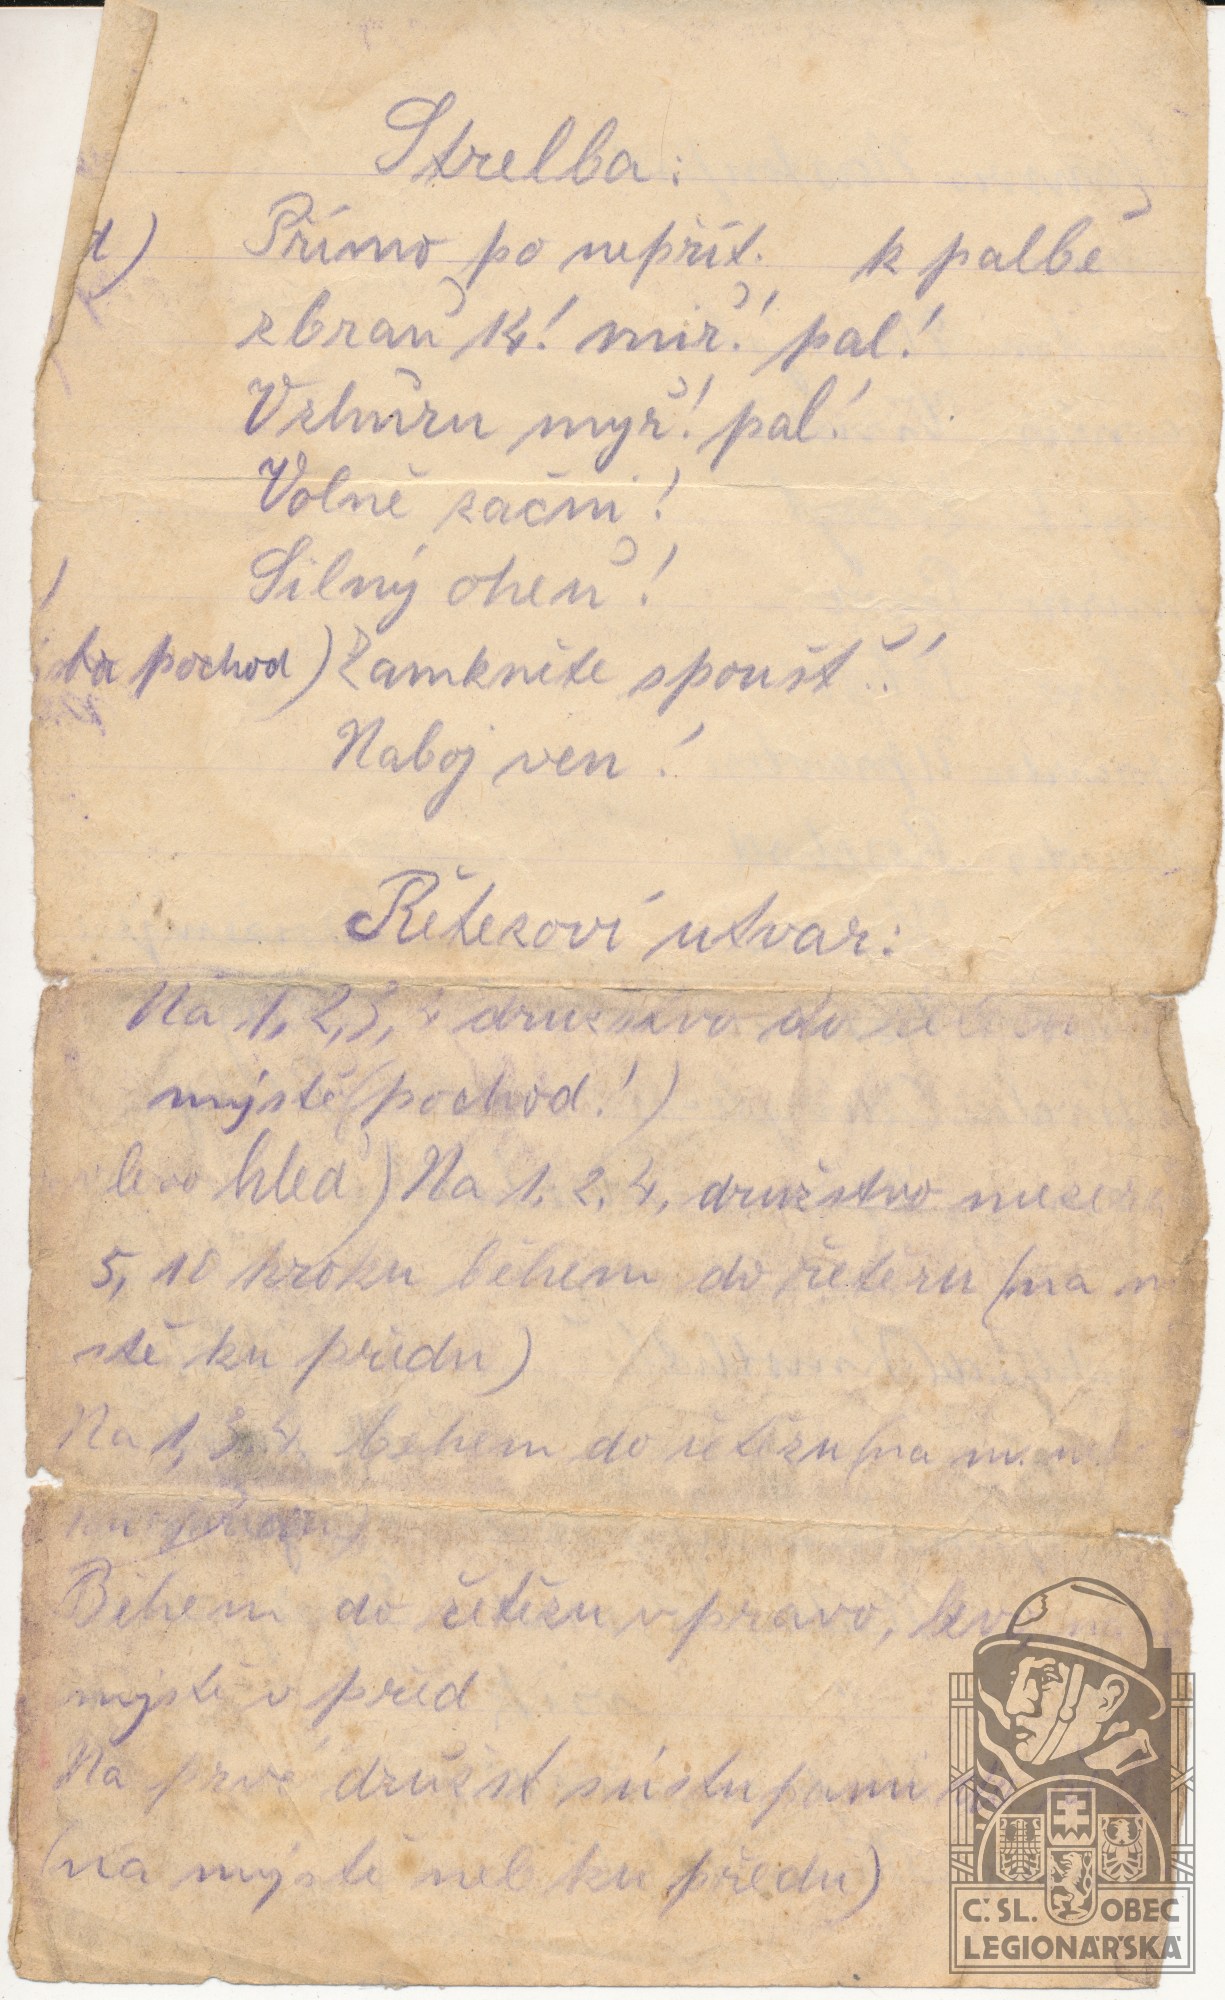 Strelba:
d) Přímo po nepřít. k palbě
zbraň 14! miř! pal!
Vzhůru myř! pal!
Volně začni!
Silný oheň!
pochod) Zamkněte spoušť!
Naboj ven!
Řětezoví utvar:
Na 1, 2, 3, družstvo do
mýstě (pochod!)
levo hleď) Na 1. 2. 4. družstvo mezera
5, 10 kroku během do řetězu (na m
stě ku předu)
Na 1, 3. 4. během do řetězu (na m.
ku předu)
Během do řetězu vpravo, levo, na
mýstě v před
Na prvé družst sústupami do
(na mýstě neb ku předu)
Č. SL. OBEC
LEGIONÁŘSKÁ